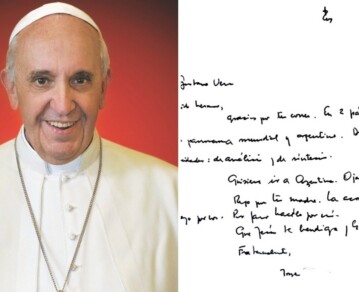 Gustavo Vera
hermano,
gracias por tu correo. En 2 pá
panorama mundial y argentino. D
cidades: de análisis y de síntesis.
Quisiera ir a Argentina. Oja
Rezo por tu madre. La
Por favor hacelo por mí.
Que Jesús te bendiga y
Fraternalmente,